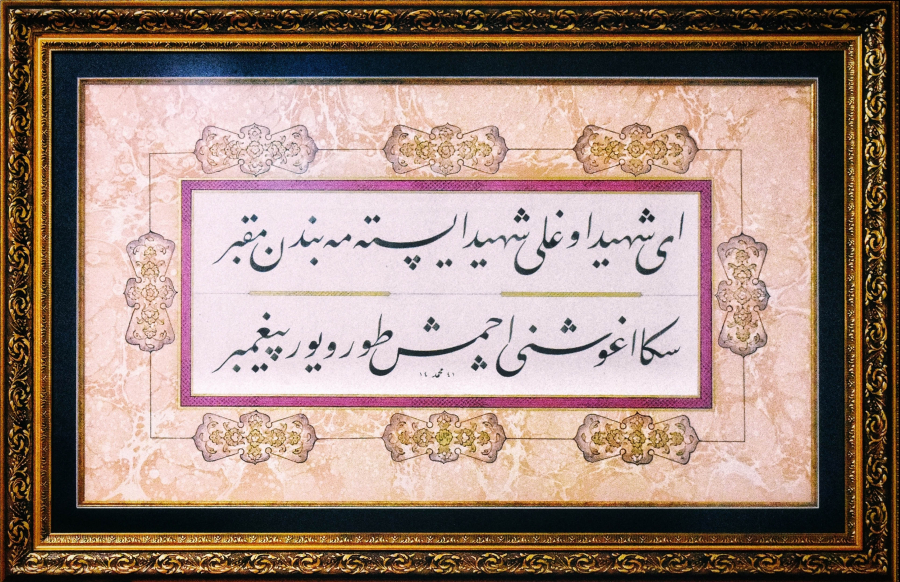 ای شهید اوغلی شهید ایسته مه بندن مقبر
سکا اغوشنی اچمش طورویور پیغمبر